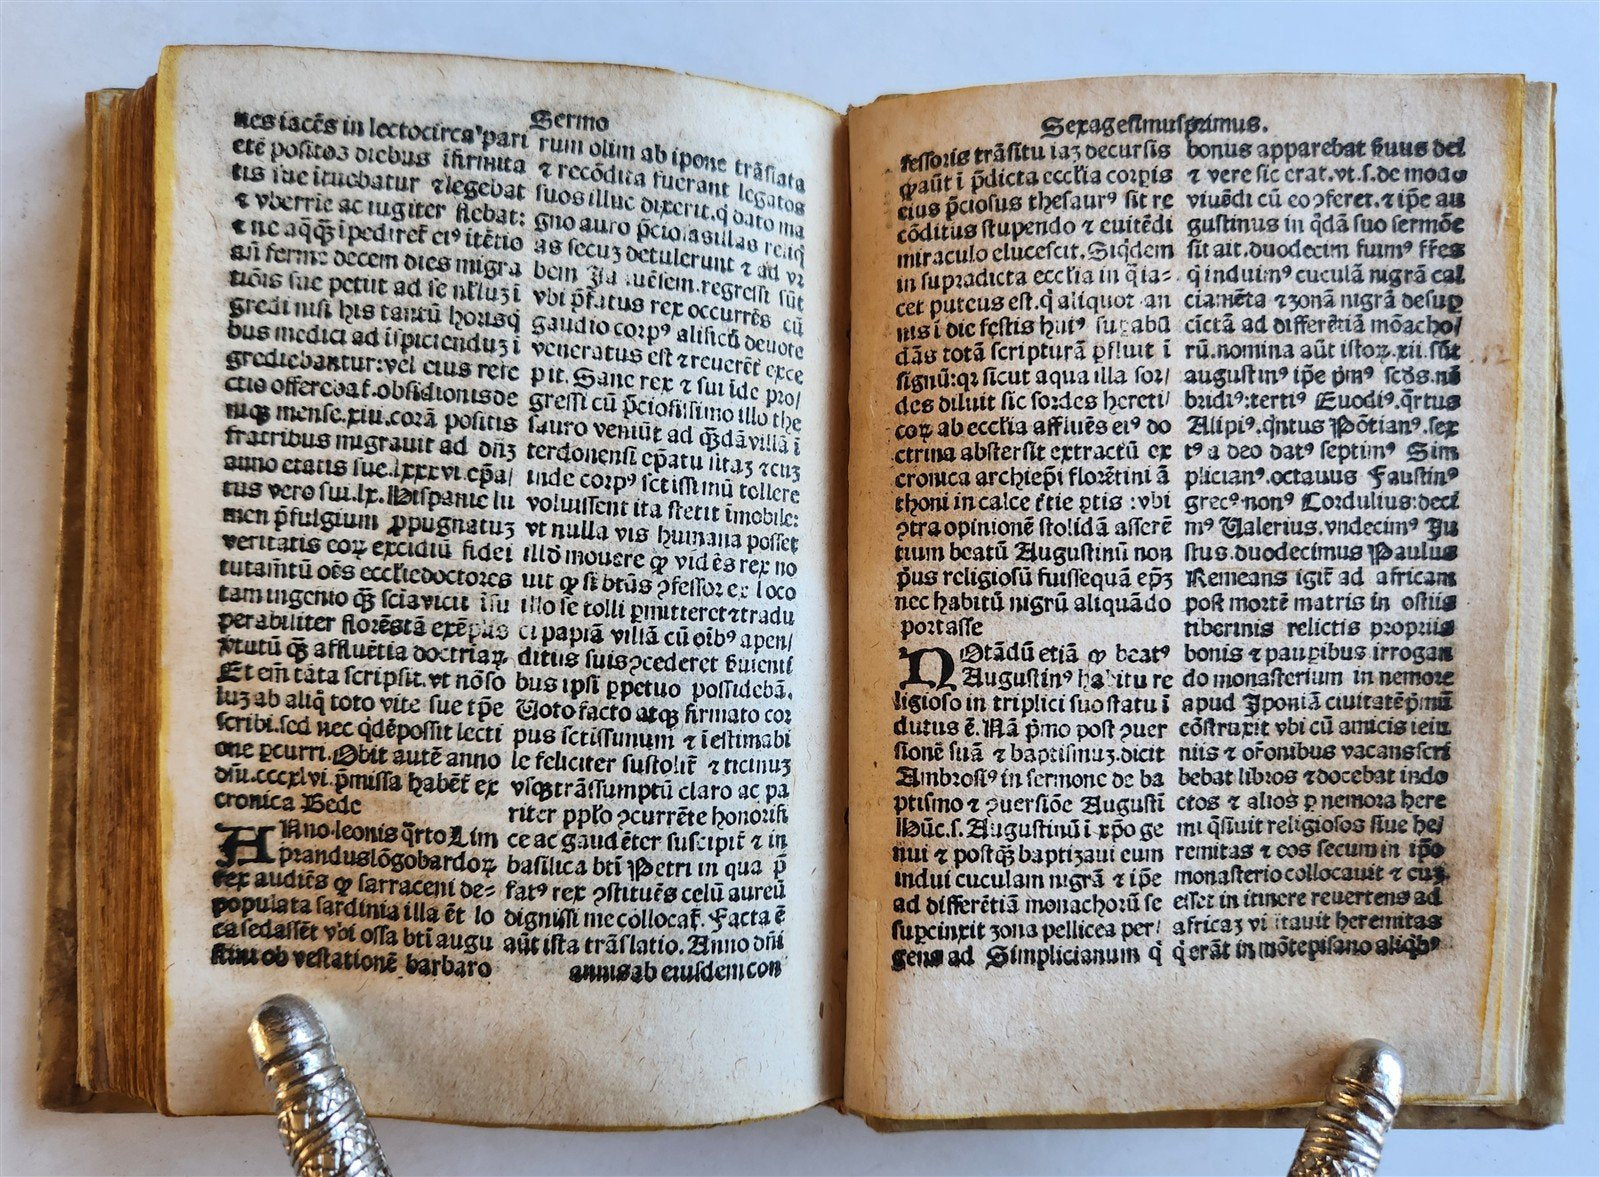 Sermo
nes iacēs in lectocirca' pari
etē positoꝫ diebus ĩfirmita
tis sue ituebatur ⁊legebat
⁊ vberrie ac iugiter flebat:
⁊ ne aq̃ꝫ̃ ĩpediret᷑ eiꝰ itētio
añ ferme decem dies migra
tiōis sue petut ad se nĺluꝫ ĩ
gredi nisi his tantū horisq̃
bus medici ad ĩspicienduꝫ ĩ
grediebantur:vel cius refe
ctio offerebat᷑.obsidionisde
niqꝫ mense.xiii.corā positis
fratribus migrauit ad dñꝫ
anno etatis sue.lxxxvi.ep̄a/
tus vero sui.lx.Hispanie lu
men p̄fulgium ꝓpugnatuꝫ
veritatis coꝝ excidiū fidei
tutam̄tū oēs ecclīedoctores
tam ingenio qꝫ̃ sciavicit ĩsu
perabiliter florēstā exēplis
v̓tutū qꝫ̃ affluētia doctriaꝝ.
Et em̄ tāta scripsit.vt nō so
luꝫ ab aliq̃ toto vite sue tp̄e
scribi.sed nec q̇dēpossit lecti
one ꝑcurri.Obit autē anno
dñi.cccxlvi.p̄missa habēt᷑ ex
cronica Bede
ANno.leonis q̄rto Lim
prandus lōgobardoꝝ
rex audiēs ꝙ sarraceni de=
populata sardinia illa ēt lo
ca fedassēt vbi ossa bt̄i augu
stini ob vestationē barbaro
rum olim ab ipone trāslata
⁊ recōdita fuerant legatos
suos illuc dixerit.q̇ dato ma
gno auro p̄ciosasillas reliq̃
as secuꝫ detulerunt ⁊ ad vr
bem Januēsem.regressi sūt
vbi p̄fatus rex occurrēs cū
gaudio corpꝰ alificū deuote
veneratus est ⁊reuerēt᷑ exce
pit. Sane rex ⁊ sui īde pro/
gressi cū p̄ciosissimo illo the
sauro veniūt ad qꝫ̃dā villā ĩ
terdonensi ep̄atu sitaꝫ ⁊cuꝫ
inde corpꝰ sctissimū tollere
voluissent ita stetit īmobile:
vt nulla vis humana posset
illd̓ mouere ꝙ vidēs rex no
uit ꝙ si bt̄us ꝯfessor ex loco
illo se tolli ꝑmitteret⁊tradu
ci papiā villā cū oībꝰ apen/
ditus suisꝯcederet ẜuienti
bus ipsi ꝑpetuo possidebā.
Uoto facto atqꝫ firmato cor
pus sctissunum ⁊ īestimabi
le feliciter sustolit᷑ ⁊ ticinuꝫ
vsqꝫtrāssumptū claro ac pa
riter ppĺo ꝯcurrēte honorifi
ce ac gaudēter suscipit᷑ ⁊ in
basilica bt̄i Petri in qua p̄
fatꝰ rex ꝯstituēs celū aureū
dignissime collocat᷑. Facta ē
aūt ista trāslatio. Anno dñi
annis ab eiusdem con
Sexagesimusprimus.
fessoris trāsitu iaꝫ decursis
ꝙaūt ĩ p̄dicta ecclīa corpis
eius p̄ciosus thesaurꝰ sit re
cōditus stupendo ⁊ euitēdi
miraculo elucescit. Siq̇dem
in supradicta ecclīa in q̄ ia=
cet puteus est.q̇ aliquot an
nis ĩ die festis huiꝰ supabū
dās totā scripturā ꝓfluit ĩ
signū:qꝛ sicut aqua illa sor/
des diluit sic sordes hereti/
coꝝ ab ecclīa affluēs eiꝰ do
ctrina abstersit extractū ex
cronica archiep̄i florētini ā
thoni in calce t̄tie ꝑtis :vbi
ꝯtra opinionē stolidā asserē
tium beatū Augustinū non
p̄us religiosū fuissequā ep̄ꝫ
nec habitū nigrū aliquādo
portasse
NOtādū etiā ꝙ beatꝰ
Augustinꝰ habitu re
ligioso in triplici suo statu ĩ
dutus ē. Nā p̄mo post ꝯuer
sionē suā ⁊ baptismuꝫ.dicit
Ambrosiꝰ in sermone de ba
ptismo ⁊ ꝯuersiōe Augusti
Hūc.s. Augustinū ĩ xp̄o ge
nui ⁊ postqꝫ̃ baptizaui eum
indui cuculam nigrā ⁊ ip̄e
ad differētiā monachorū se
supcinxit zona pellicea per/
gens ad Simplicianum q̇
bonus apparebat ẜuus dei
⁊ vere sic erat.vt.s.de modo
viuēdi cū eo ꝯferet.⁊ ip̄e au
gustinus in q̇dā suo sermōe
sit ait.duodecim fuimꝰ fr̄es
q̇ induimꝰ cuculā nigrā cal
ciamēta ⁊ zonā nigrā desuꝑ
cīctā ad differētiā mōacho/
rū.nomina aūt istoꝝ.xii.sūt
augustinꝰ ip̄e p̄mꝰ scd̓s.na
bridiꝰ:tertiꝰ Euodiꝰ.q̄rtus
Alipiꝰ.q̇ntus Pōtianꝰ.sex
tꝰ a deo datꝰ septimꝰ Sim
plicianꝰ.octauus Faustinꝰ
grecꝰ.nonꝰ Cordulius:deci
mꝰ Ualerius.vndecimꝰ Ju
stus.duodecimus Paulus
Remeans igit᷑ ad africam
post mortē matris in ostiis
tiberinis relictis propriis
bonis ⁊ pauꝑibus irrogan
do monasterium in nemore
apud Jponiā ciuitatē p̄mū
cōstruxit vbi cū amicis ieiu
niis ⁊ or̄onibus vacans scri
bebat libros ⁊docebat indo
ctos ⁊ alios ꝑ nemora here
mi q̄siuit religiosos siue he/
remitas ⁊ eos secum in ip̄o
monasterio collocauit ⁊ cuꝫ
esset in itinere reuertens ad
africaꝫ visitauit heremitas
q̇ erāt in mōtepisano aliq̇bꝰ